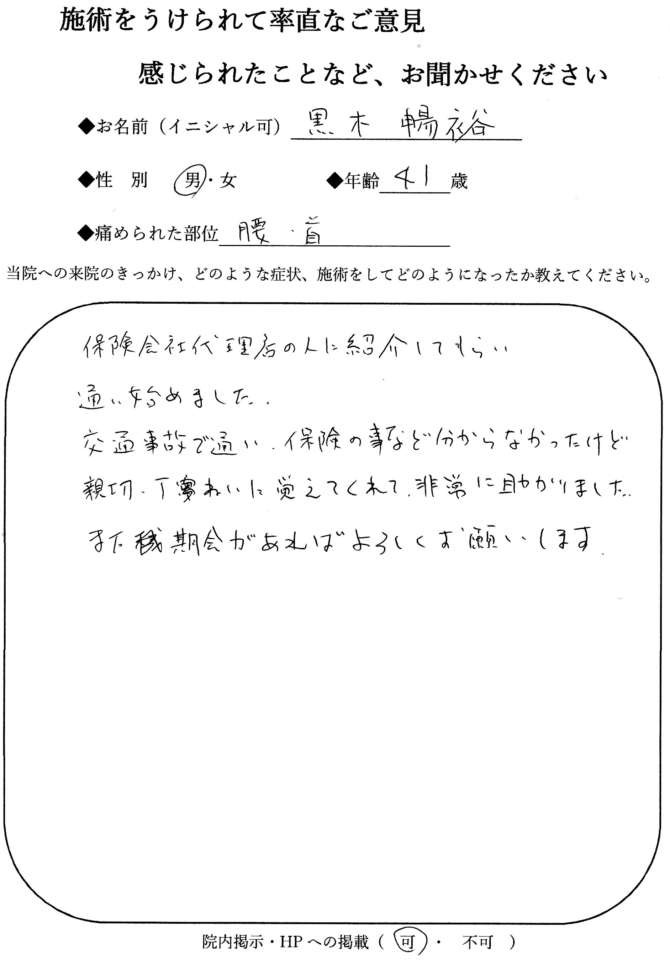 施術をうけられて率直なご意見
感じられたことなど、お聞かせください
◆お名前（イニシャル可） 黒木 暢裕
◆性 別 男・女 ◆年齢 41 歳
◆痛められた部位 腰・首
当院への来院のきっかけ、どのような症状、施術をしてどのようになったか教えてください。
保険会社代理店の人に紹介してもらい
通い始めました.
交通事故で通い、保険の事など分からなかったけど
親切、丁寧ねいに覚えてくれて、非常に助かりました.
また機期会があればよろしくお願いします.
院内掲示・HPへの掲載（ 可 ・ 不可 ）